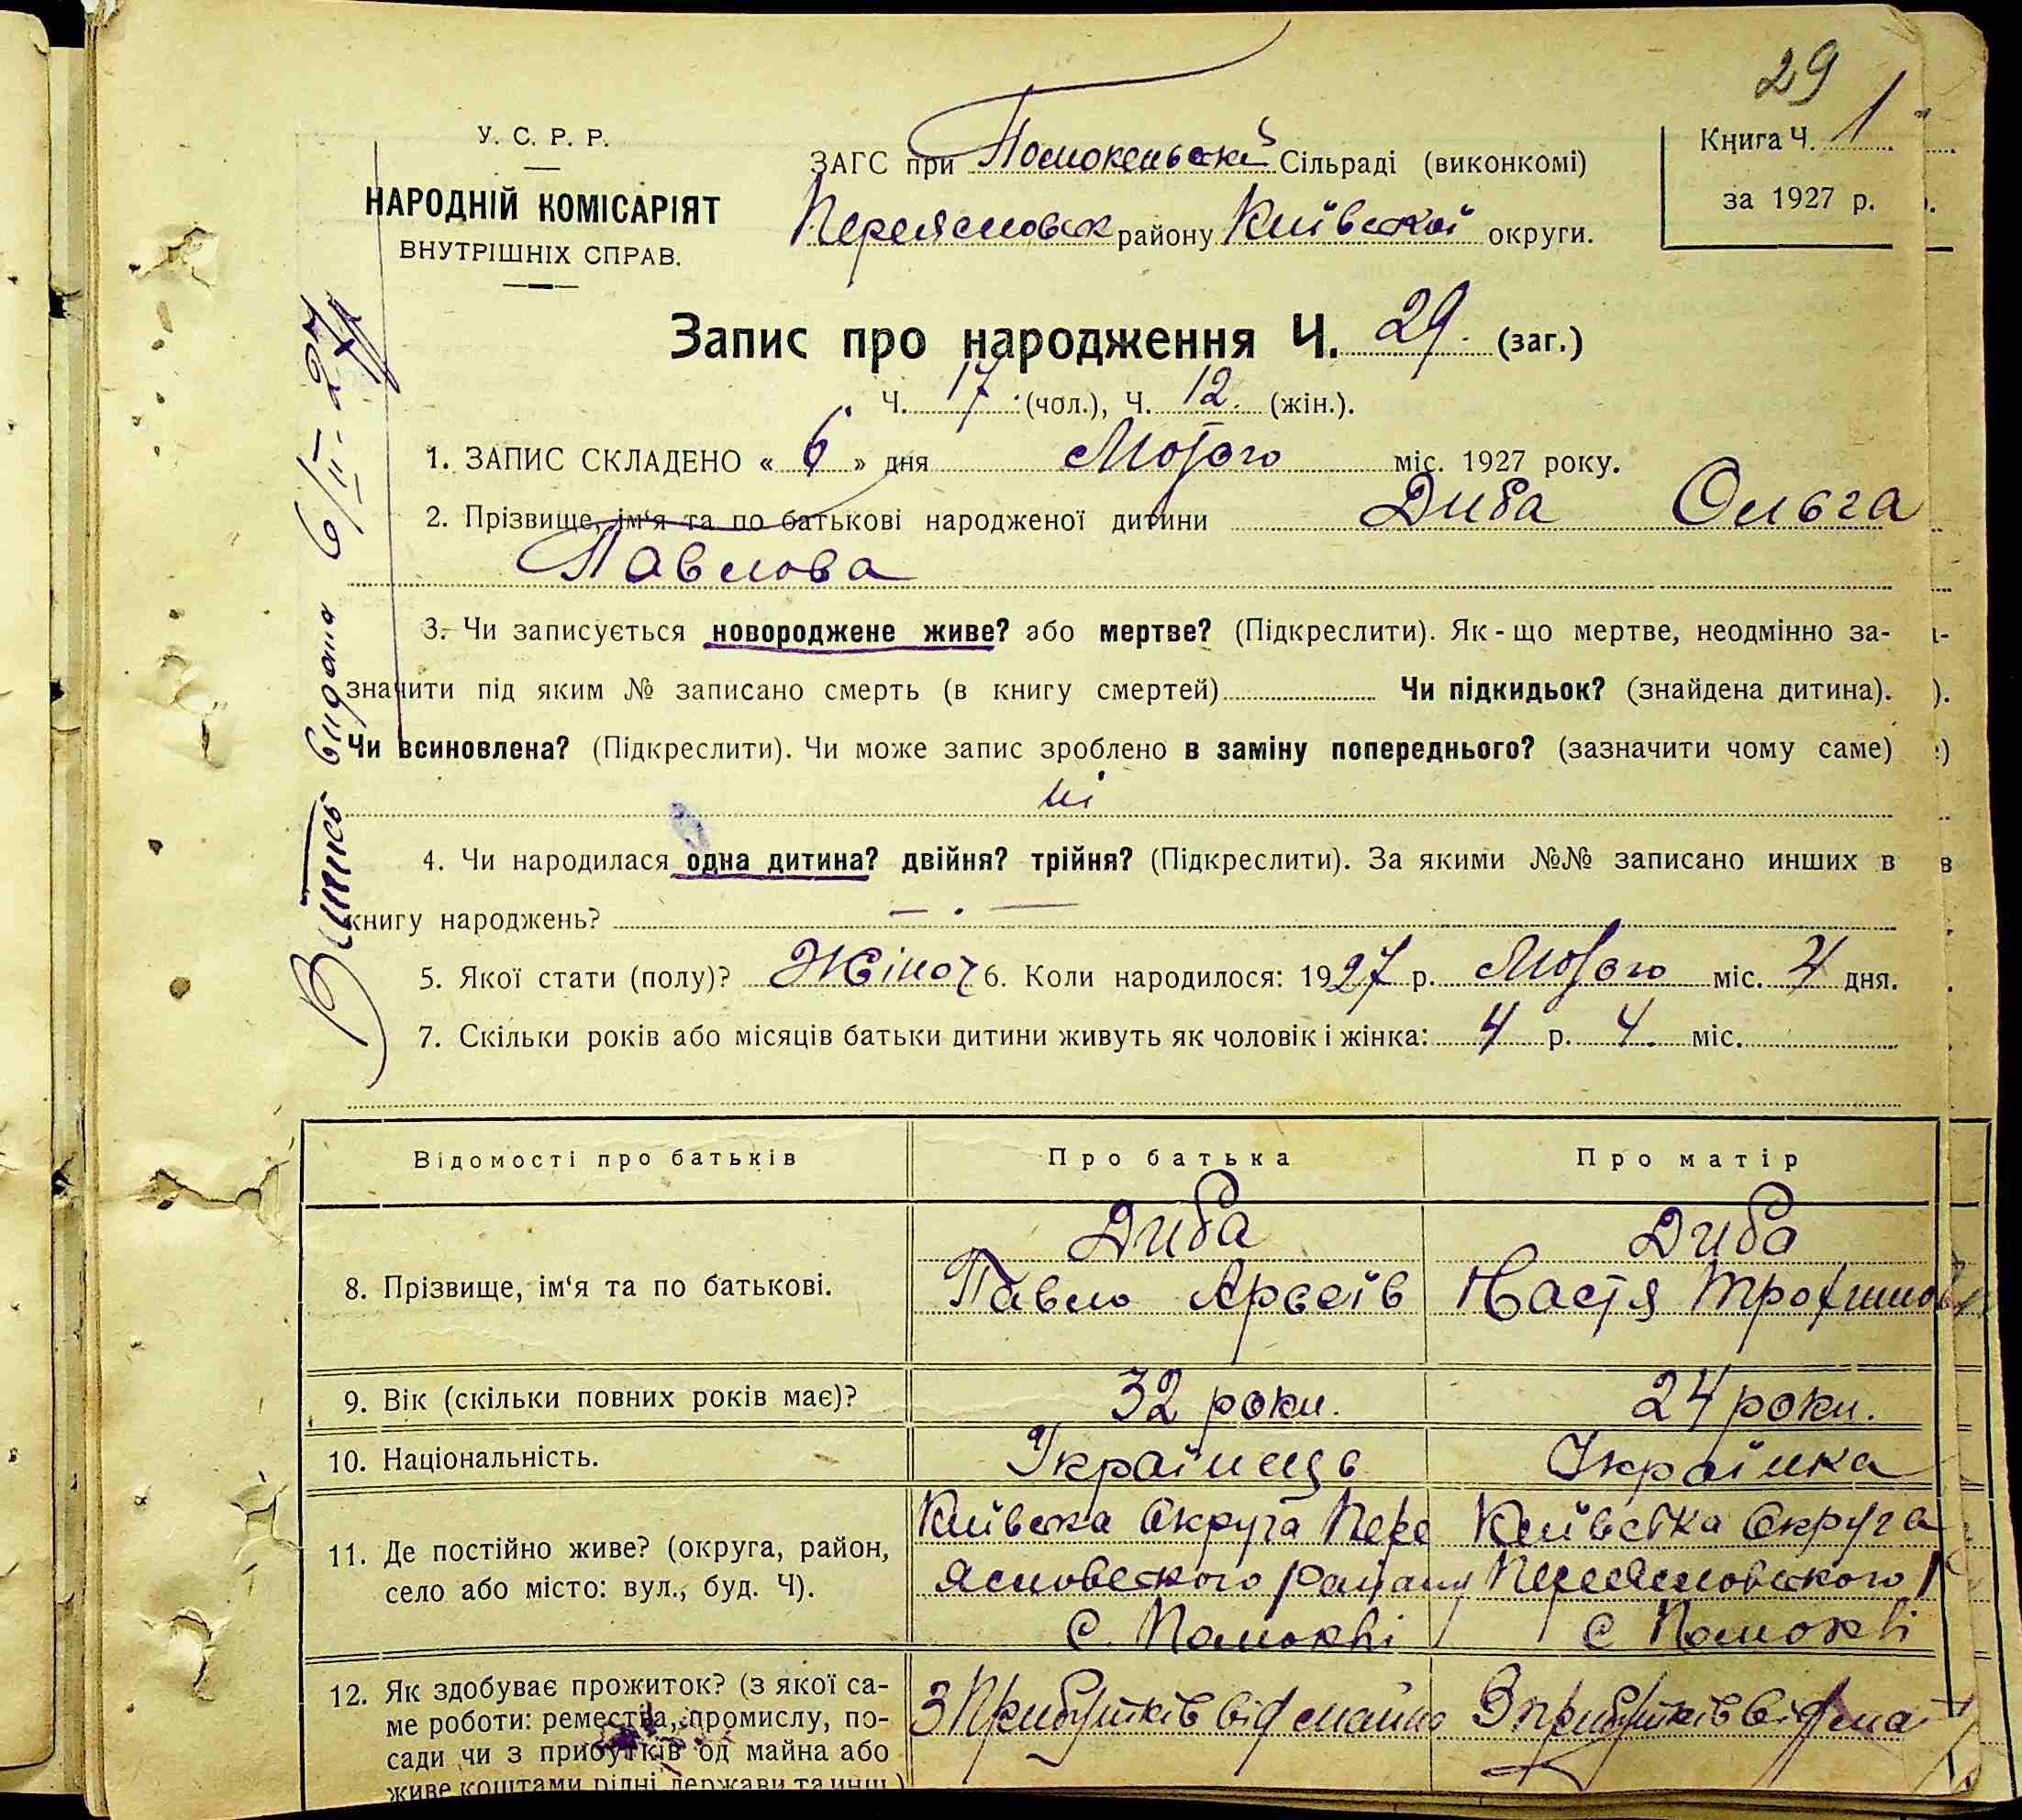 29
У. С. Р. Р.
НАРОДНІЙ КОМІСАРІЯТ
ВНУТРІШНІХ СПРАВ.
ЗАГС при Помокельскій Сільраді (виконкомі)
Переяславск району Київської округи.
Книга Ч. 1
за 1927 р.
Запис про народження Ч. 29. (заг.)
Ч. 17 (чол.), Ч. 12. (жін.).
1. ЗАПИС СКЛАДЕНО « 6 » дня Лютого міс. 1927 року.
2. Прізвище, ім‘я та по батькові народженої дитини Диба Ольга
Павлова
3. Чи записується новороджене живе? або мертве? (Підкреслити). Як-що мертве, неодмінно за-
значити під яким № записано смерть (в книгу смертей) Чи підкидьок? (знайдена дитина).
Чи всиновлена? (Підкреслити). Чи може запис зроблено в заміну попереднього? (зазначити чому саме)
ні
4. Чи народилася одна дитина? двійня? трійня? (Підкреслити). За якими №№ записано инших в
книгу народжень? — . —
5. Якої стати (полу)? Жіноч 6. Коли народилося: 1927 р. Лютого міс. 4 дня.
7. Скільки років або місяців батьки дитини живуть як чоловік і жінка: 4 р. 4. міс.
Витпсь видана 6/II-27
Відомості про батьків Про батька Про матір
8. Прізвище, ім‘я та по батькові.
Диба
Павло
Диба
Настя Трофимов
9. Вік (скільки повних років має)? 32 роки. 24 роки.
10. Національність. Українець Українка
11. Де постійно живе? (округа, район,
село або місто: вул., буд. Ч).
Київска Округа Пере
яславского Району
с. Помоклі
Київска Округа
Переяславского Р
с Помоклі
12. Як здобуває прожиток? (з якої са-
ме роботи: ремества, промислу, по-
сади чи з прибутків од майна або
живе коштами рідні, держави та инш.)
З Прибутків від майна
З прибутків від ма